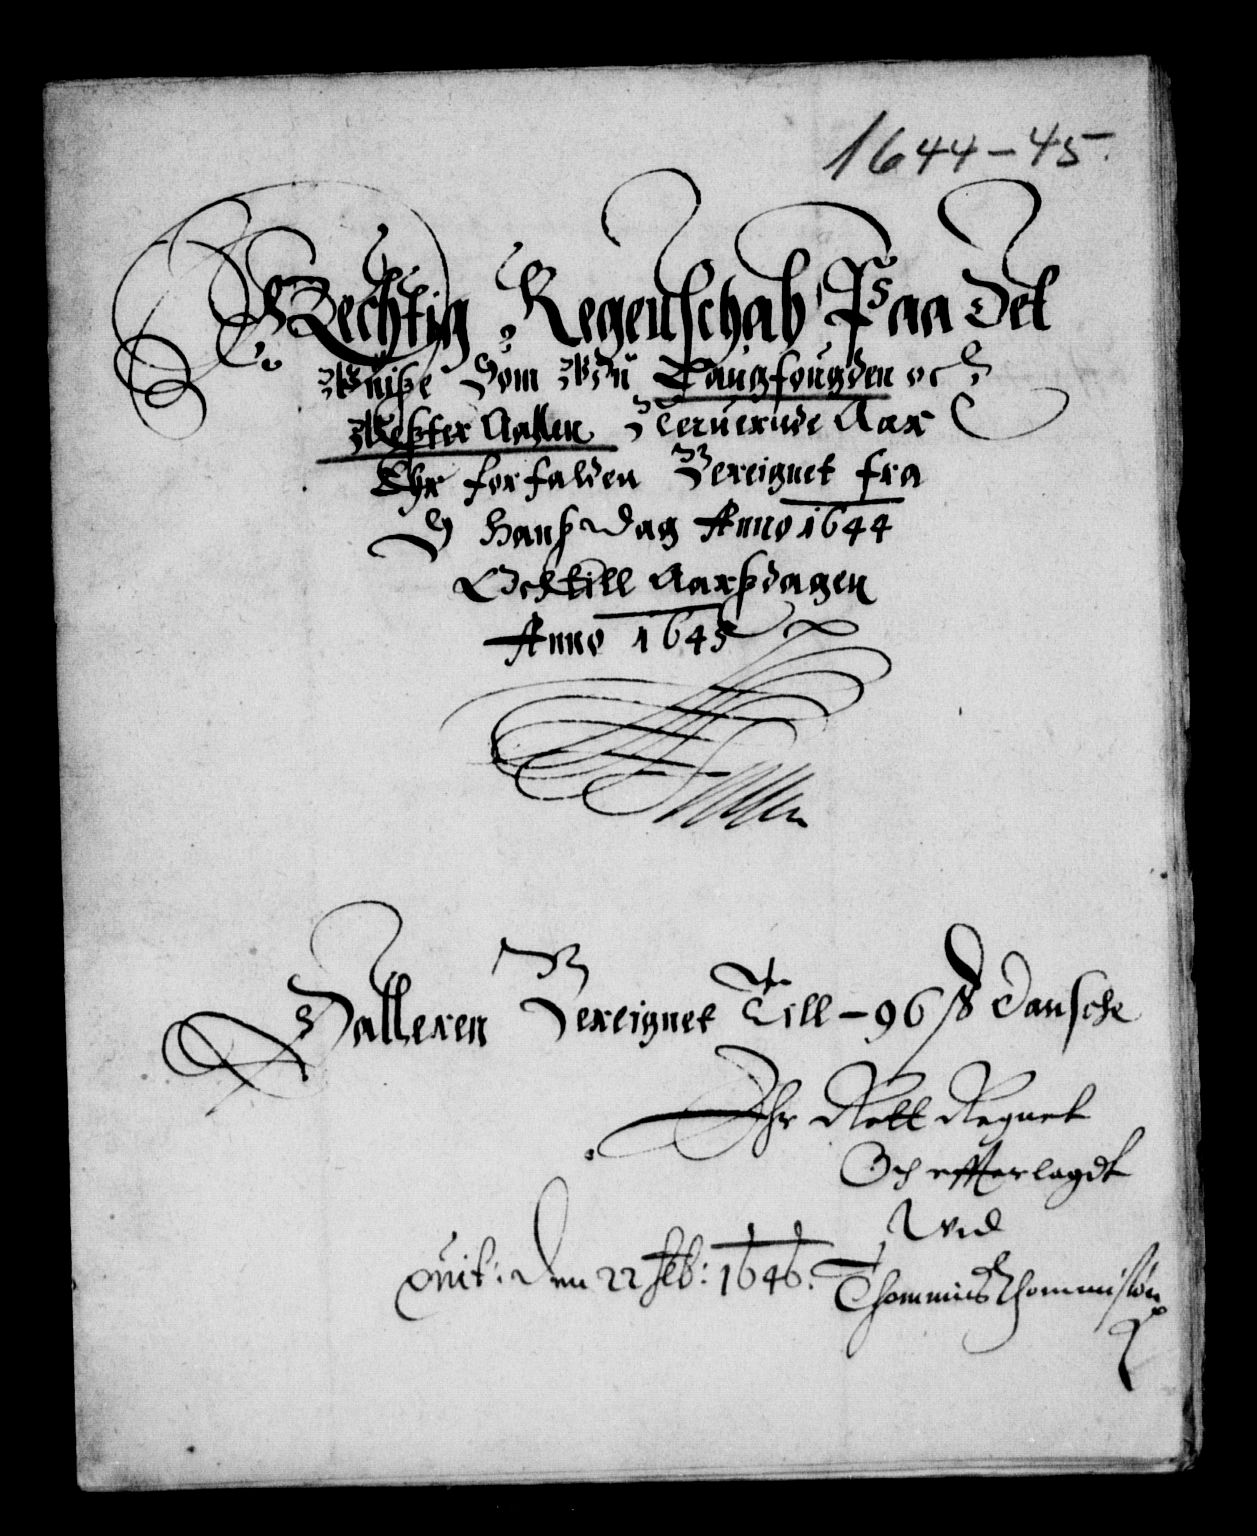 1644-45.
Rechtig Regenschab Paa Det
Wiße Som Udű Laugfougden och
Wester Aaßen Neruerude Aar
Ehr forfalden Bereignet fra
S Hanß Dag Anno 1644
Och till Aarßdagen
Anno 1645
Dalleren Bereignet Till - 96 ß Dansche
Ehr Rett Regnet
Och effterlagdt
Wed
quit: Den 22 feb: 1646. Thommis Thommissøn